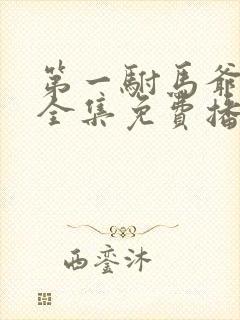 第一駙馬爺
全集免費播
西鑾沐